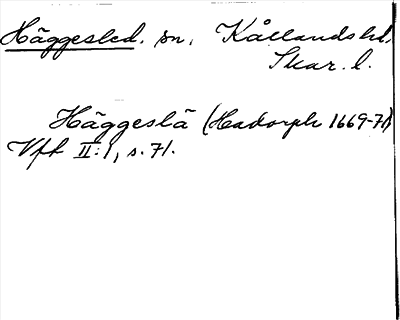 Häggesled. sn, Kållands hd,
Skar. l.
Häggeslä (Hadorph 1669-71)
Vff II:1, s. 71.